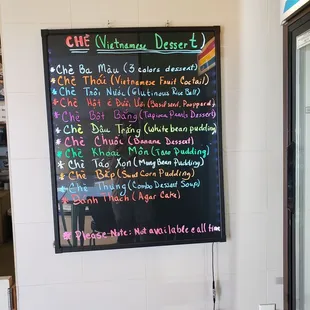 CHÈ (Vietnamese Dessert)
* Chè Ba Màu (3 colors dessert)
* Chè Thái (Vietnamese Fruit Coctail)
* Chè Trôi Nước (Glutinous Rice Ball)
* Chè Hột é Bưởi Vôi (Basil seed,
* Chè Bột Báng (Tapioca Pearls Dessert)
* Chè Đậu Trắng (white bean pudding)
* Chè Chuối (Banana Dessert)
* Chè Khoai Môn (Taro Pudding)
* Chè Táo Xọn (Mung Bean Pudding)
* Chè Bắp (Sweet Corn Pudding)
* Chè Thưng (Combo Dessert Soup)
* Bánh Thạch (Agar Cake)
* Please Note: Not available all time